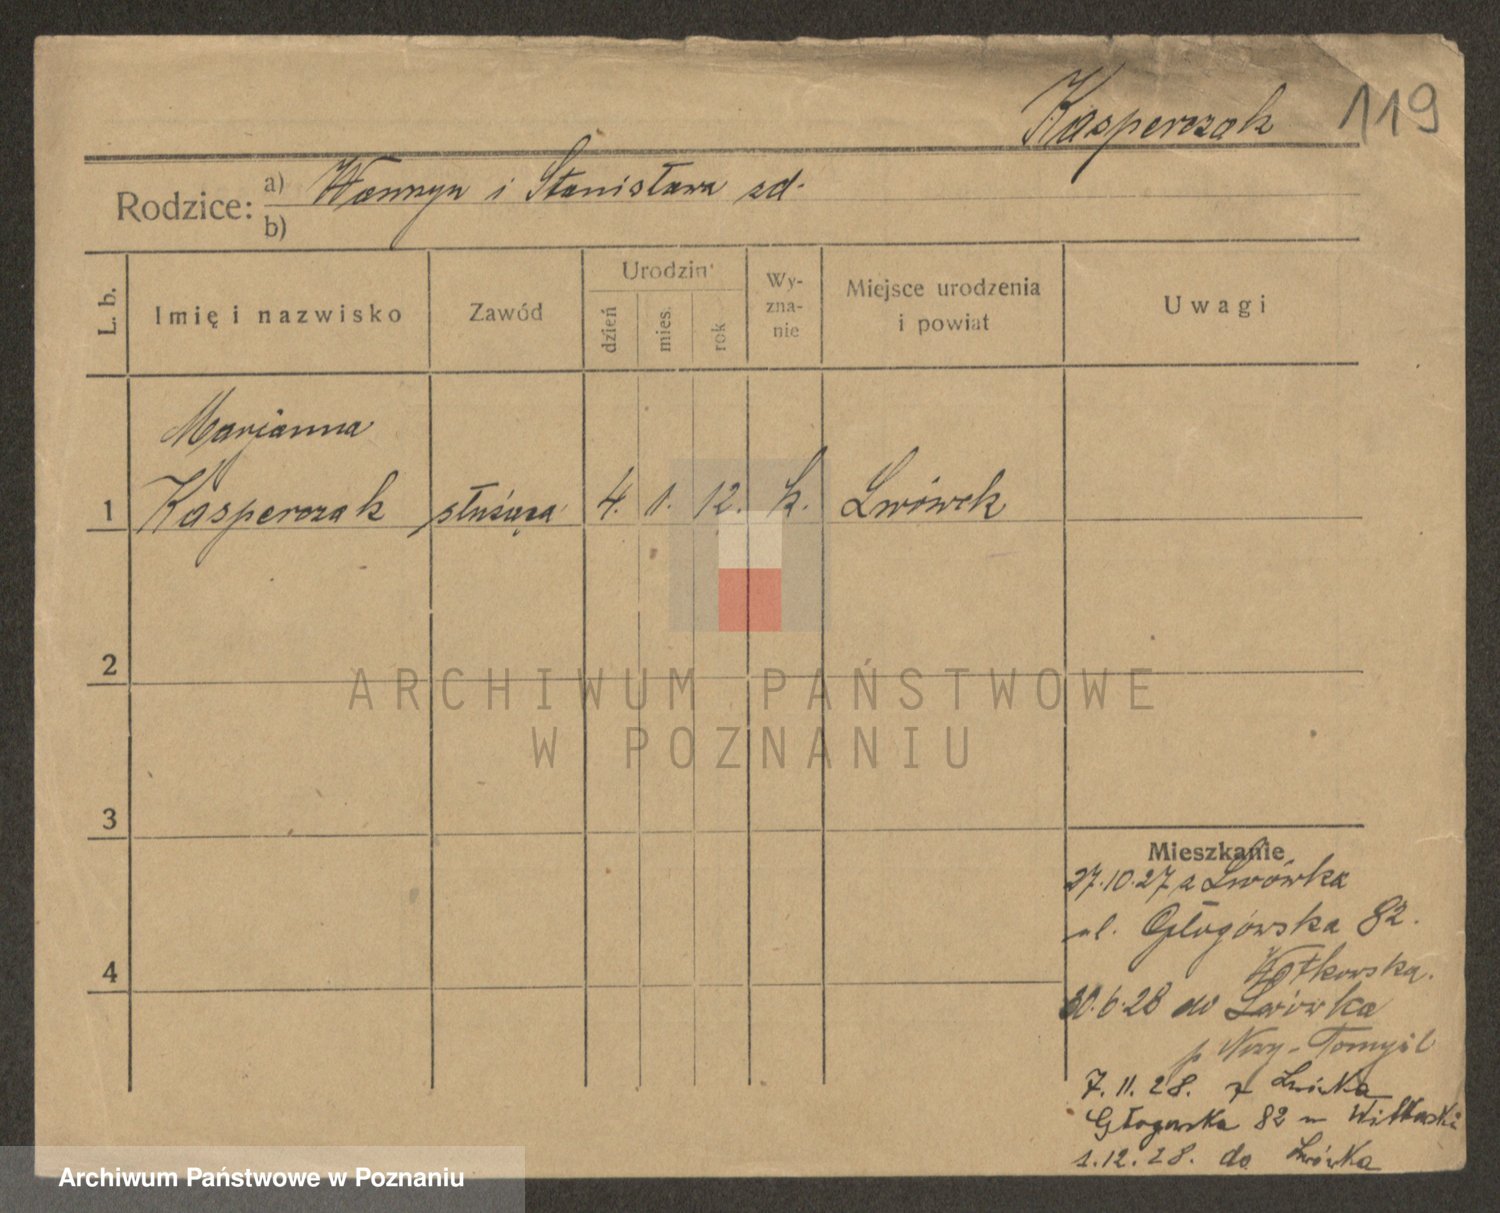 Kasperczak 119
Rodzice: a) i Stanisława zd.
b)
L. b. Imię i nazwisko Zawód Urodzin Wy-zna-nie Miejsce urodzenia i powiat Uwagi
dzień mies. rok
Marjanna
1 Kasperczak służąca 4. 1. 12. k. Lwówek
2
ARCHIWUM PAŃSTWOWE
W POZNANIU
3
Mieszkanie
27.10.27 z Lwówka
ul. Głogówska 82.
4
30.6.28 do Lwówka
p Nowy-Tomyśl
7.11.28. z Lwówka
Głogowska 82
1.12.28. do Lwówka
Archiwum Państwowe w Poznaniu